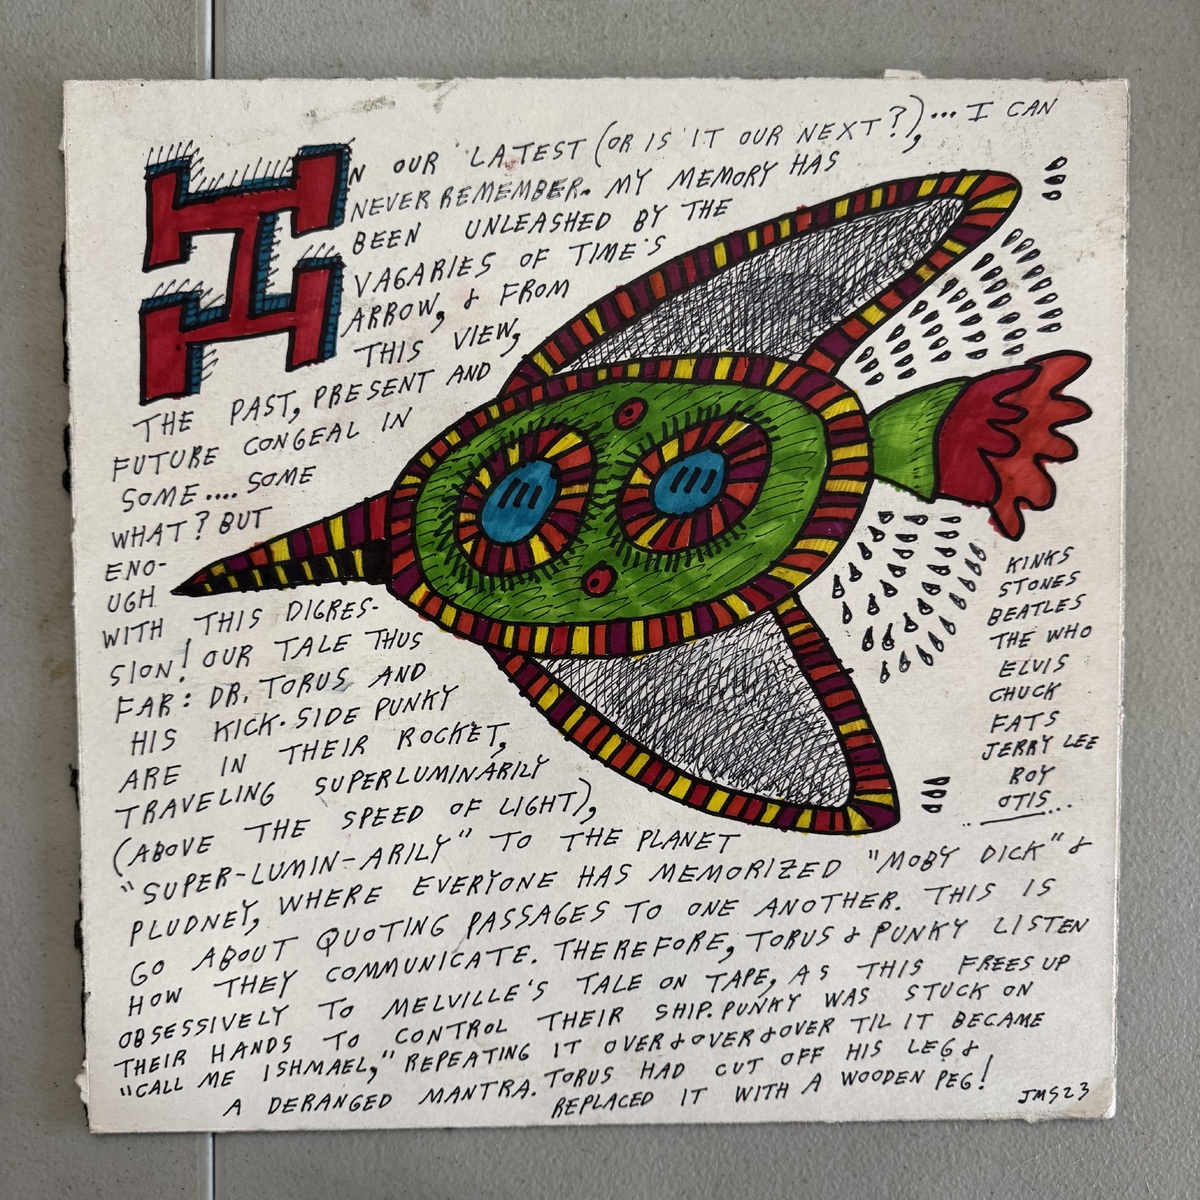 IN OUR LATEST (OR IS IT OUR NEXT?),... I CAN
NEVER REMEMBER. MY MEMORY HAS
BEEN UNLEASHED BY THE
VAGARIES OF TIME'S
ARROW, & FROM
THIS VIEW,
THE PAST, PRESENT AND
FUTURE CONGEAL IN
SOME.... SOME
WHAT? BUT
ENO-
UGH
WITH THIS DIGRES-
SION! OUR TALE THUS
FAR: DR. TORUS AND
HIS KICK-SIDE PUNKY
ARE IN THEIR ROCKET,
TRAVELING SUPERLUMINARILY
(ABOVE THE SPEED OF LIGHT),
"SUPER-LUMIN-ARILY" TO THE PLANET
PLUDNEY, WHERE EVERYONE HAS MEMORIZED "MOBY DICK" &
GO ABOUT QUOTING PASSAGES TO ONE ANOTHER. THIS IS
HOW THEY COMMUNICATE. THEREFORE, TORUS & PUNKY LISTEN
OBSESSIVELY TO MELVILLE'S TALE ON TAPE, AS THIS FREES UP
THEIR HANDS TO CONTROL THEIR SHIP. PUNKY WAS STUCK ON
"CALL ME ISHMAEL," REPEATING IT OVER & OVER & OVER TIL IT BECAME
A DERANGED MANTRA. TORUS HAD CUT OFF HIS LEG &
REPLACED IT WITH A WOODEN PEG!
KINKS
STONES
BEATLES
THE WHO
ELVIS
CHUCK
FATS
JERRY LEE
ROY
OTIS...
JMS23